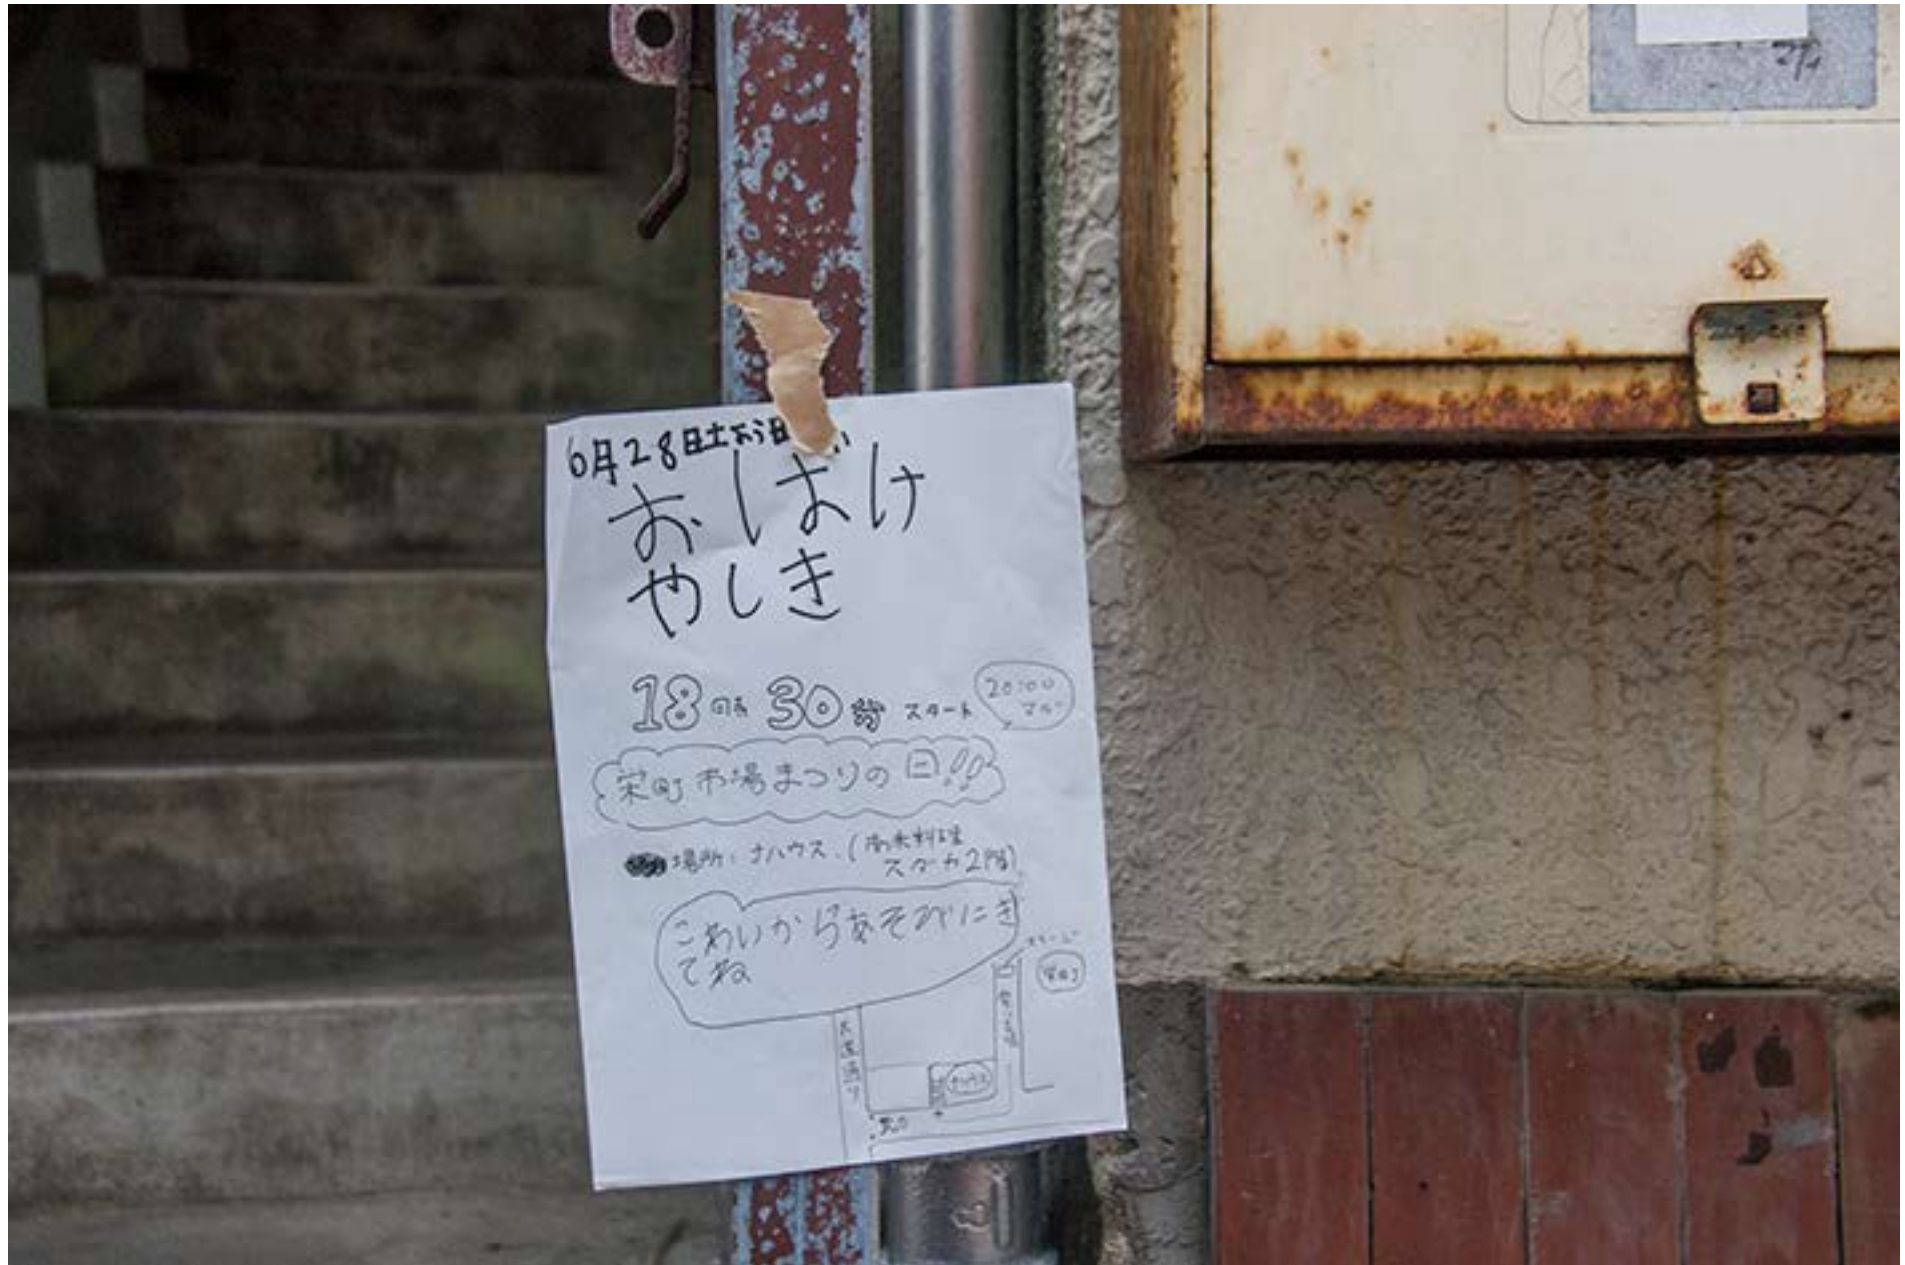 6月28日土よう日
おばけ
やしき
18時30分スタート
20:00
マデ
栄町市場まつりの日!!
場所:ナハウス.(南米料理
スダカ2階)
こわいからあそびにき
てね
大道通り
ナハウス
栄町